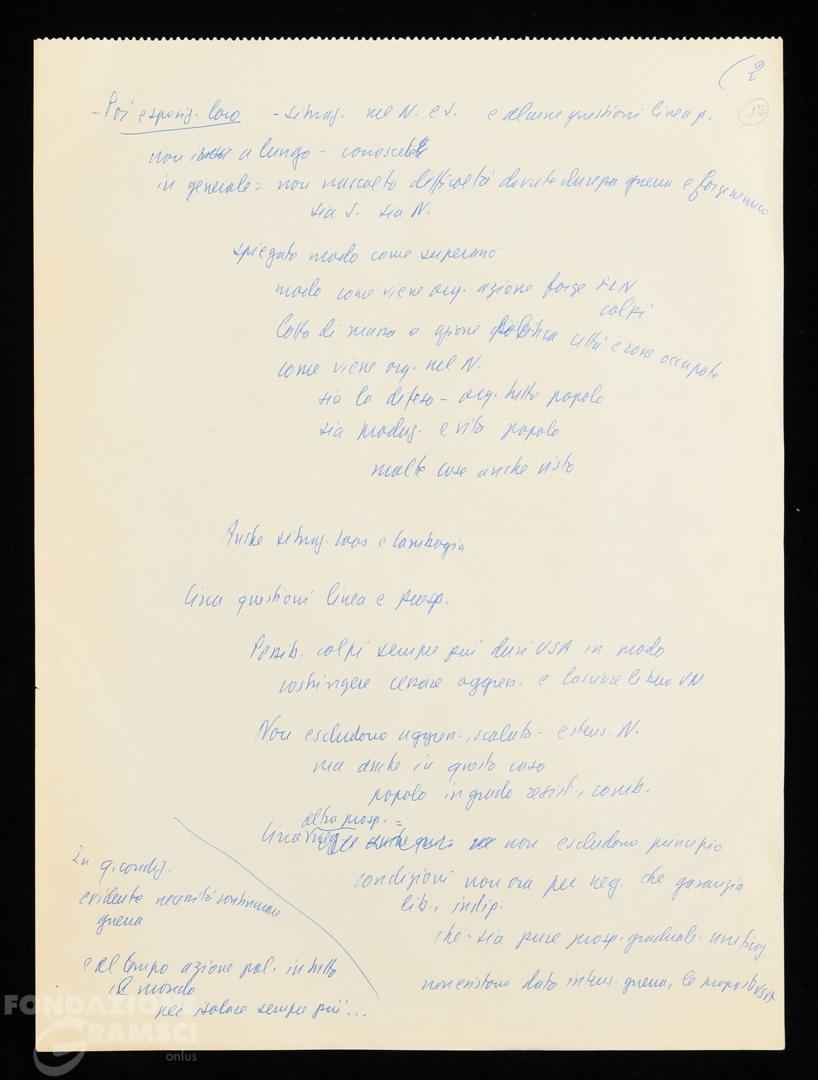 (2
15
- Poi esposiz. loro - situaz. nel N. e S. e alcune questioni linea p.
non a lungo - conoscete
in generale: non nascosto difficoltà dovute durezza guerra e forze nemico
sia S. sia N.
spiegato modo come superano
modo come viene org. azione forze FLN
colpi
lotta di massa e azione politica città e zone occupate
come viene org. nel N.
sia la difesa - org. tutto popolo
sia produz. e vita popolo
molte cose anche visto
Anche situaz. Laos e Cambogia
Circa questioni linea e prosp.
Possib. colpi sempre più duri USA in modo
costringere cessare aggres. e lasciare libero VN
Non escludono aggres., scalata - estens. N.
ma anche in questo caso
popolo in grado resist., comb.
altra prosp. =
Circa non escludono principio
condizioni non ora per neg. che garanzia
lib., indip.
che - sia pure prosp. graduale - unificaz.
non esistono dato intens. guerra, le proposte USA
In q. condiz.
evidente necessità continuare
guerra
e al tempo azione pol. in tutto
il mondo
per isolare sempre più ...
FONDAZIONE
GRAMSCI
onlus